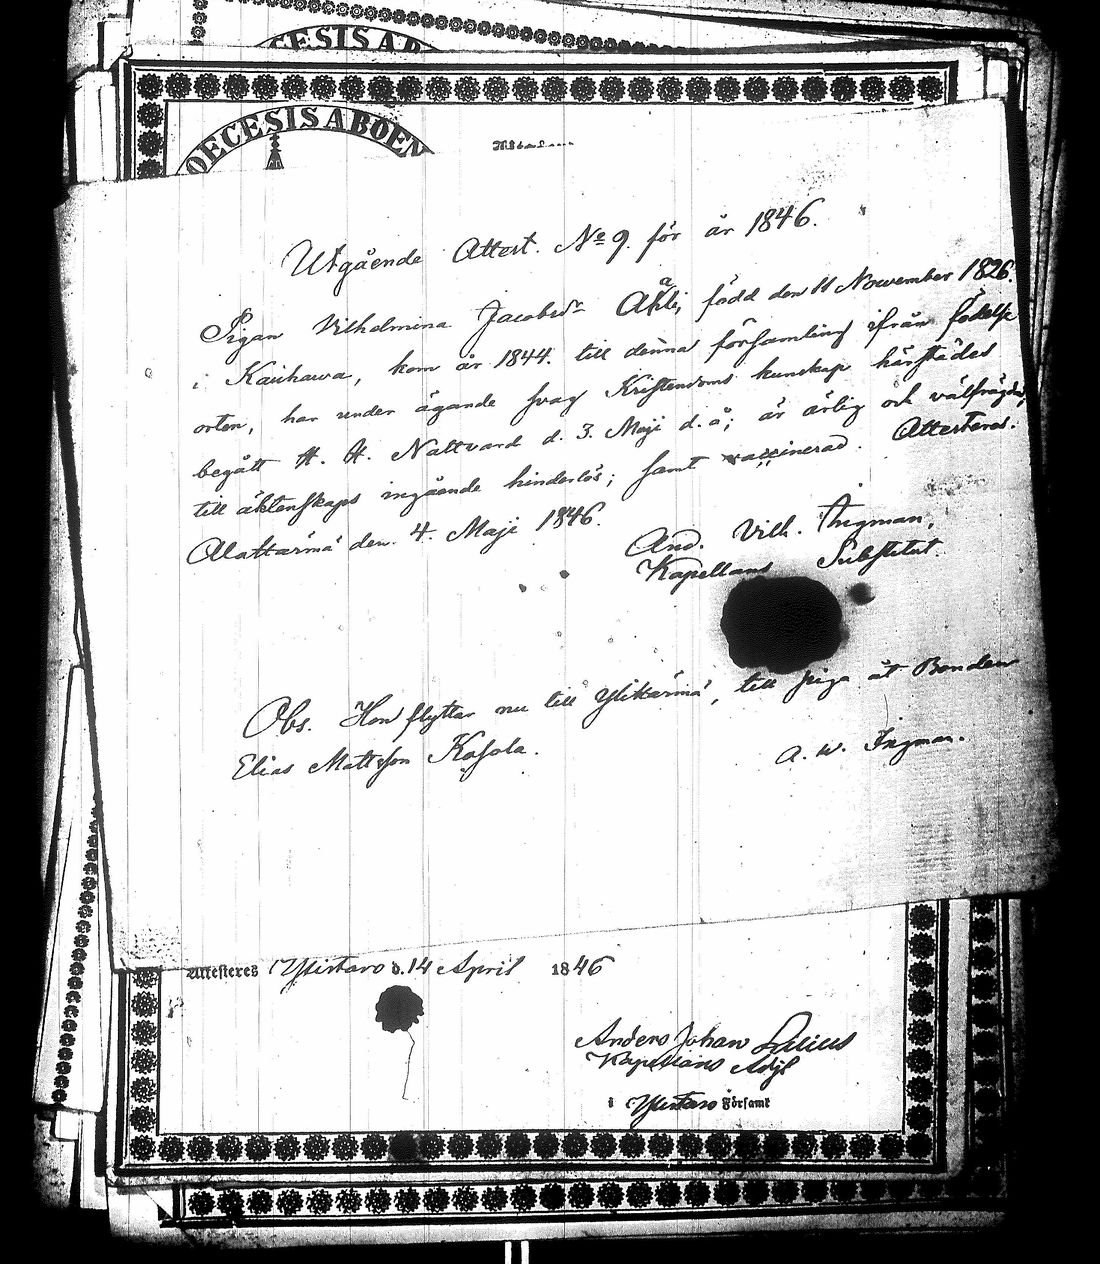 CESIS AB
OECESIS ABOEN
Utgående Attest. No 9. för år 1846.
Pigan Vilhelmina Jacobsdr
född den 11 November 1826.
i Kauhawa, kom år 1844. till denna församling ifrån födelse
orten, har under ägande svag Kristendoms kunskap härstädes
begått H. H. Nattvard d. 3. Maji d. å; är ärlig och välfrägdad,
till äktenskaps ingående hinderlös; samt vaccinerad. Attesteras.
Alahärmä den 4. Maji 1846.
And. Vilh. Ingman,
Kapellans Substitut.
Obs. Hon flyttar nu till Ylihärmä, till piga åt Bonden
Elias Mattsson Kasola.
A. W. Ingman.
Attesteres Ylistaro d. 14 April 1846
Anders Johan
Kapellans Adj
i Ylistaro Församl